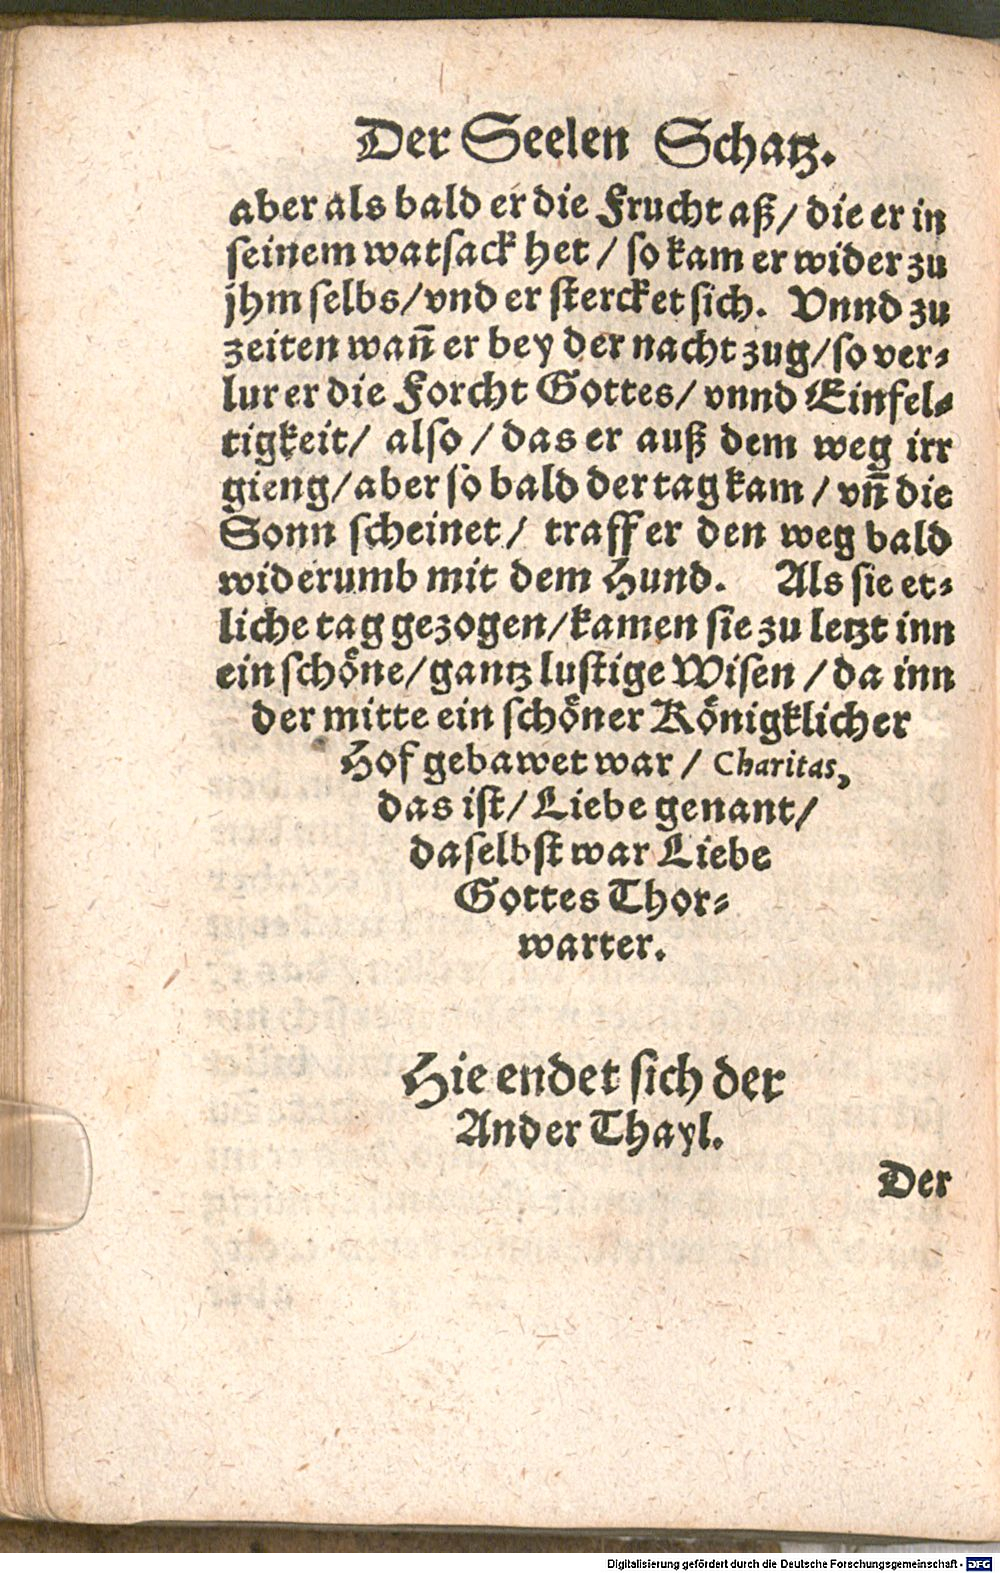 Der Seelen Schatz.
aber als bald er die Frucht aß/ die er in
seinem watsack het / so kam er wider zu
jhm selbs/vnd er stercket sich. Vnnd zu
zeiten wañ er bey der nacht zug/so ver-
lur er die Forcht Gottes/ vnnd Einfel-
tigkeit/ also / das er auß dem weg irr
gieng/aber so bald der tag kam / vñ die
Sonn scheinet/ traff er den weg bald
widerumb mit dem Hund. Als sie et-
liche tag gezogen/kamen sie zu letzt inn
ein schöne/gantz lustige Wisen / da inn
der mitte ein schöner Königklicher
Hof gebawet war / Charitas,
das ist/ Liebe genant/
daselbst war Liebe
Gottes Thor-
warter.
Hie endet sich der
Ander Thayl.
Der
Digitalisierung gefördert durch die Deutsche Forschungsgemeinschaft - DFG